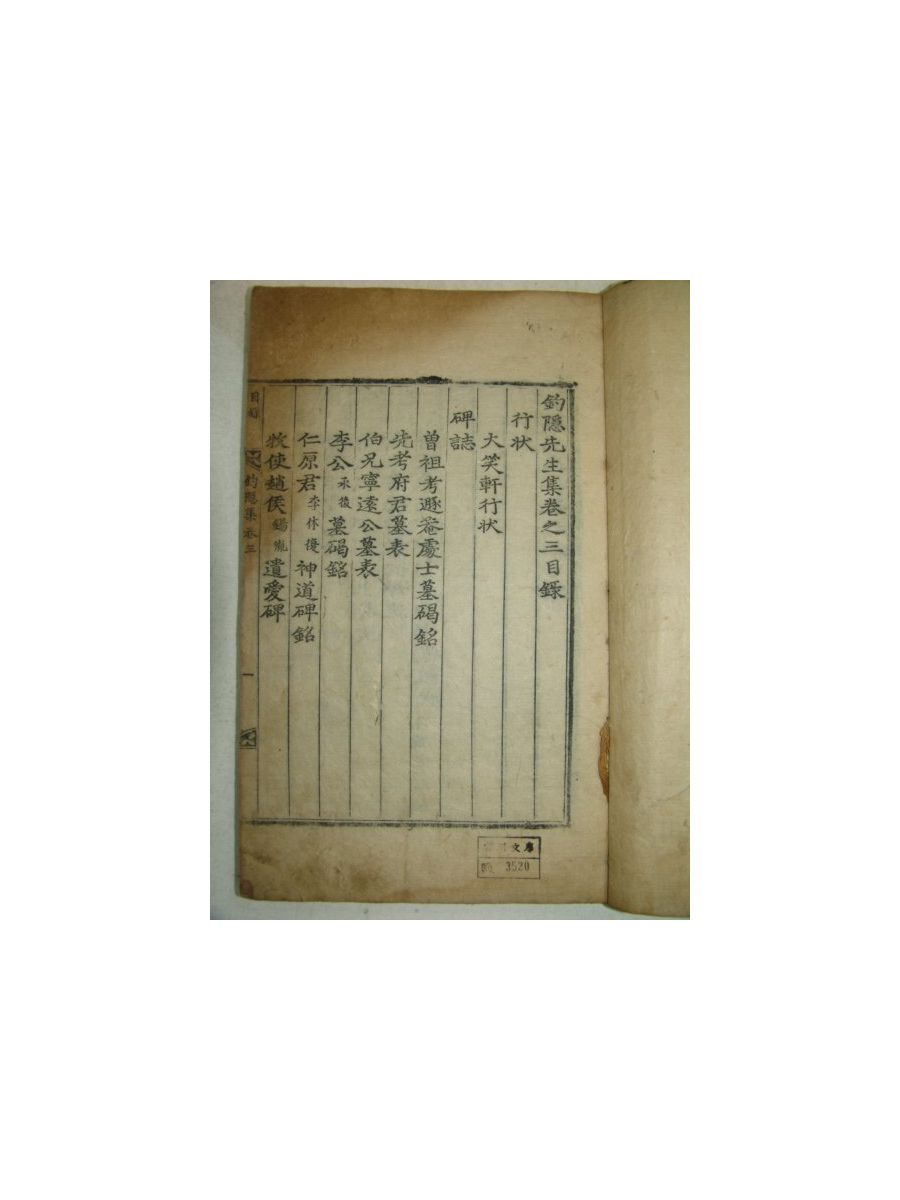 釣隱先生集卷之三目錄
行狀
大笑軒行狀
碑誌
曾祖考遯菴處士墓碣銘
先考府君墓表
伯兄寧遠公墓表
李公承後墓碣銘
仁原君李休復神道碑銘
牧使趙侯錫胤遺愛碑
目錄
釣隱集卷三
一
文庫
3520